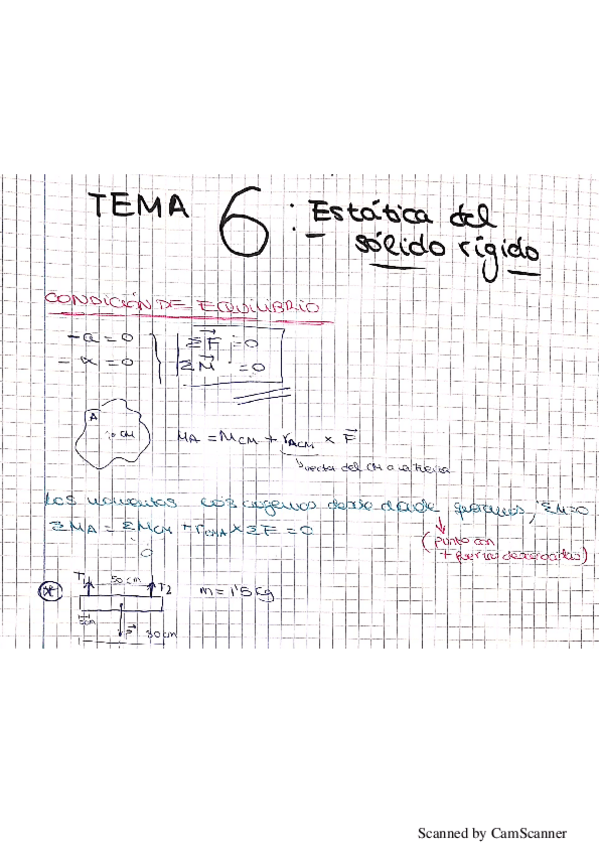 TEMA 6: Estática del
sólido rígido
CONDICIÓN DE EQUILIBRIO
- a = 0
= α = 0
ΣF⃗ = 0
ΣM⃗ = 0
A
CM
MA = MCM + rACM × F⃗
vector del CM a la
Los momentos los cogemos desde donde queramos, ΣM=0
ΣMA = ΣMCM + rCMA × ΣF = 0
0
(punto con
+ fuerzas descartadas)
* T1 50cm T2 m = 1'5 Kg
P⃗ 30cm
Scanned by CamScanner